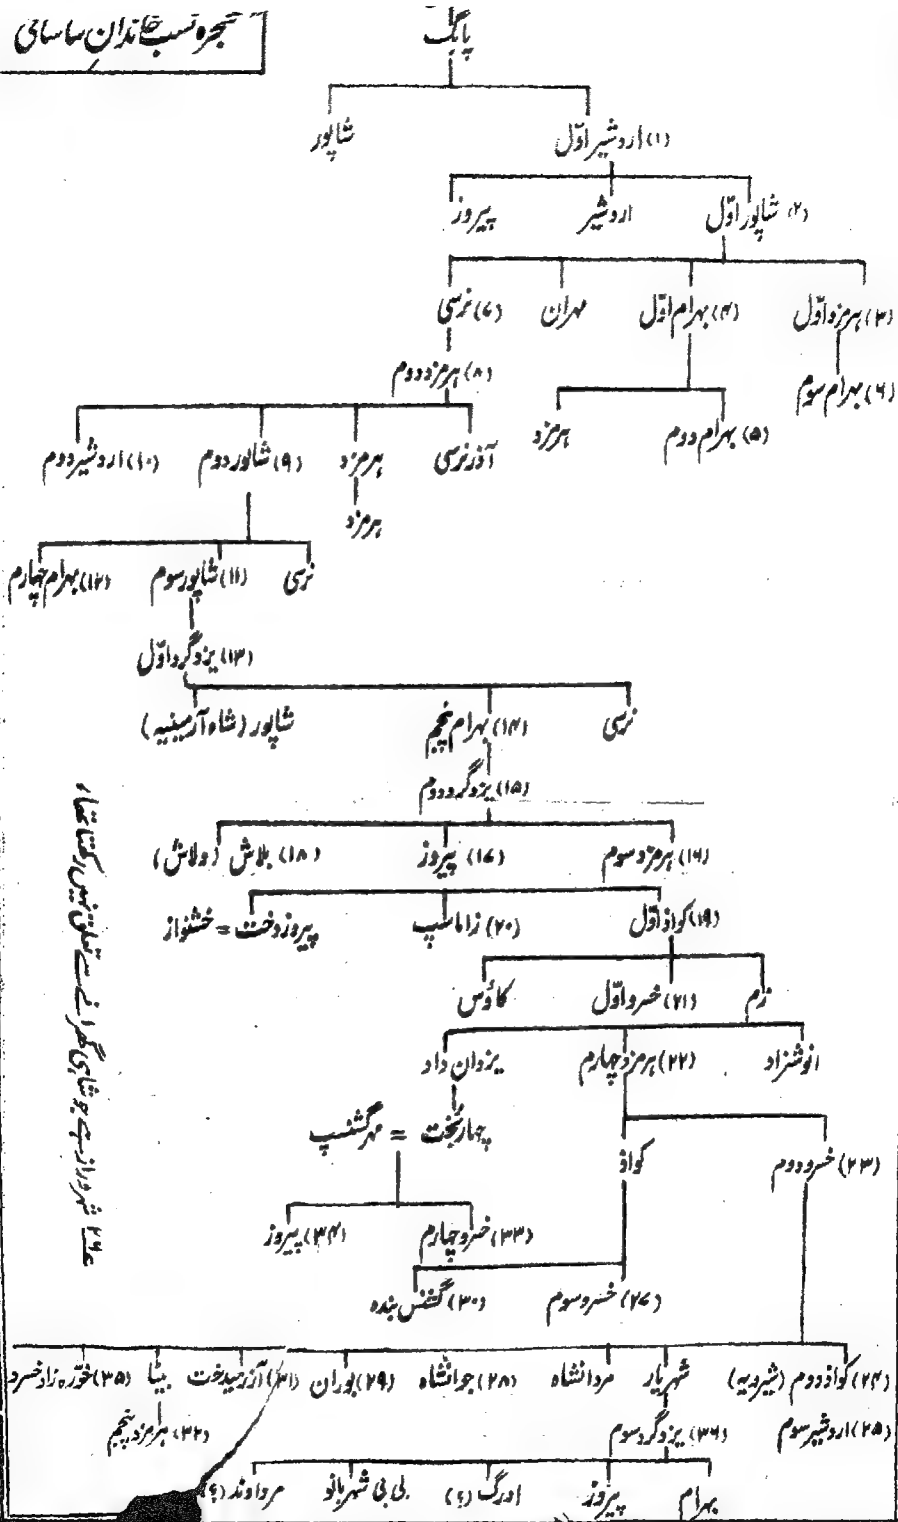 شجرہ نسب خاندان ساسانی
پاپگ
(۱) اردشیر اوّل شاپور
(۲) شاپور اوّل اردشیر پیروز
(۳) ہرمزد اوّل (۴) بہرام اوّل مہران (۷) نرسی
(۶) بہرام سوم (۸) ہرمزد دوم
(۵) بہرام دوم ہرمزد
آذر نرسی ہرمزد (۹) شاپور دوم (۱۰) اردشیر دوم
ہرمزد
نرسی (۱۱) شاپور سوم (۱۲) بہرام چہارم
(۱۳) یزدگرد اوّل
نرسی (۱۴) بہرام پنجم شاپور (شاہ آرمینیہ)
(۱۵) یزدگرد دوم
(۱۶) ہرمزد سوم (۱۷) پیروز (۱۸) بلاش (ولاش)
(۱۹) کواذ اوّل (۲۰) زاماسپ پیروزدخت = خشنواز
زم (۲۱) خسرو اوّل کاؤس
انوشزاد (۲۲) ہرمزد چہارم یزدان داد
چہاربخت = مہرگشنسپ
(۲۳) خسرو دوم کواذ
(۳۳) خسرو چہارم (۳۴) پیروز
(۲۷) خسرو سوم (۳۰) گشنس بندہ
(۲۴) کواذ دوم (شیرویہ) شہریار مردانشاہ (۲۸) جوانشاہ (۲۹) بوران (۳۱) آزرمیدخت بیٹا (۳۵) خورّہ زاد خسرو
(۲۵) اردشیر سوم (۳۶) یزدگرد سوم (۳۲) ہرمزد پنجم
بہرام پیروز اورگ (؟) بی بی شہربانو مرداوند (؟)
۲۶ شہروراز ہے جو شاہی گھرانے سے تعلق نہیں رکھتا تھا،